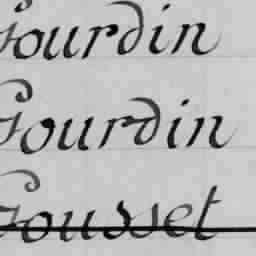 Gourdin
Gourdin
Gousset